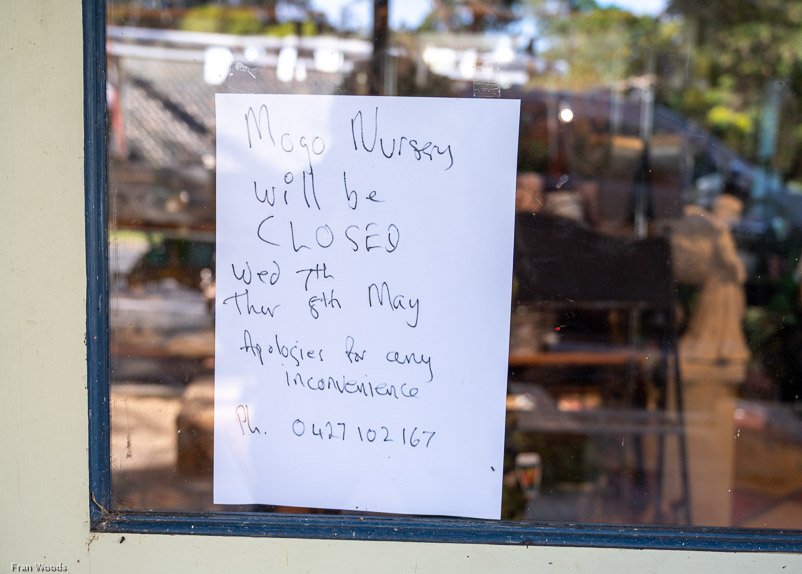 Mogo Nursery
will be
CLOSED
Wed 7th
Thur 8th May
Apologies for any
inconvenience
Ph. 0427 102 167
Fran Woods